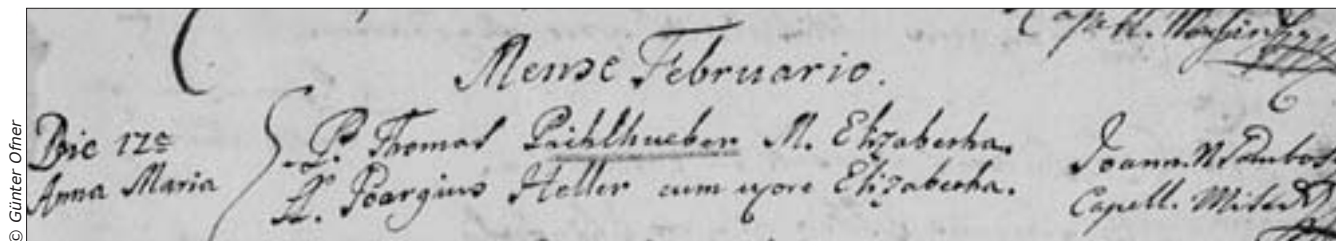 © Günter Ofner
Capell.
Mense Februario.
Die 12e
Anna Maria
P. Thomas Pichlhueber M. Elizabetha.
Joann. N.
L. Georgius Heller cum uxore Elizabetha.
Capell.